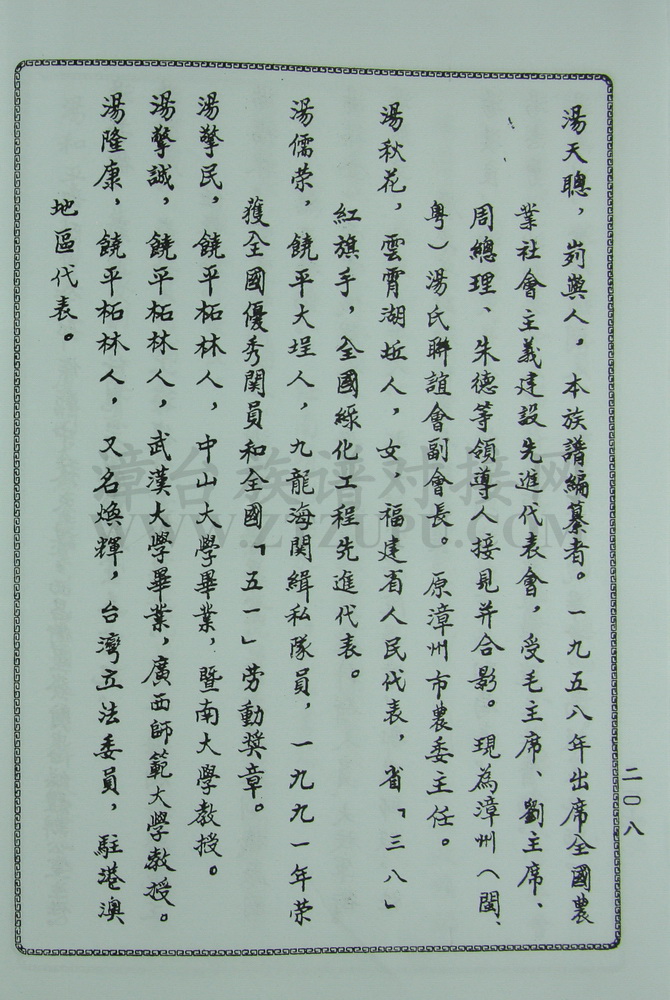 湯天聰，峛㠘人。本族譜編纂者。一九五八年出席全國農
業社會主義建設先進代表會，受毛主席、劉主席、
周總理、朱德等領導人接見并合影。現為漳州（閩、
粵）湯氏聯誼會副會長。原漳州市農委主任。
湯秋花，雲霄湖坵人，女，福建省人民代表，省「三八」
紅旗手，全國綠化工程先進代表。
湯儒荣，饒平大埕人，九龍海関緝私隊員，一九九一年荣
獲全國優秀関員和全國「五一」劳動奖章。
湯擎民，饒平柘林人，中山大学畢業，暨南大学教授。
湯擎誠，饒平柘林人，武漢大学畢業，廣西師範大学教授。
湯隆康，饒平柘林人，又名煥輝，台灣立法委員，駐港澳
地區代表。
二〇八
漳台族谱对接网
WWW.ZTZUPU.COM